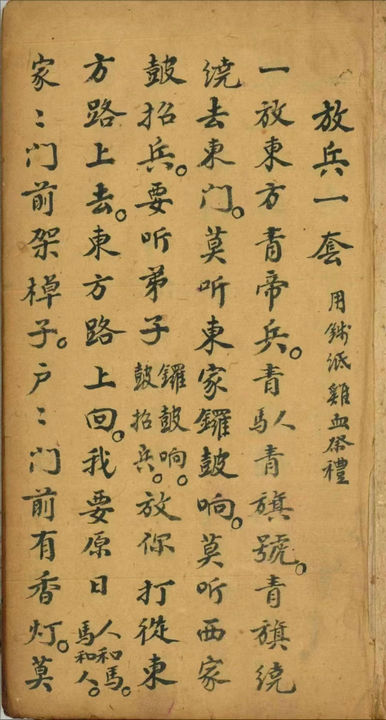 放兵一套 用銭纸雞血祭禮
一放東方青帝兵。青人馬青旗號。青旗绕
绕去東门。莫听東家鑼皷响。莫听西家
皷招兵。要听弟子鑼皷响。皷招兵。放你打從東
方路上去。東方路上回。我要原日人和馬。馬和人。
家〻门前架棹子。户〻门前有香灯。莫